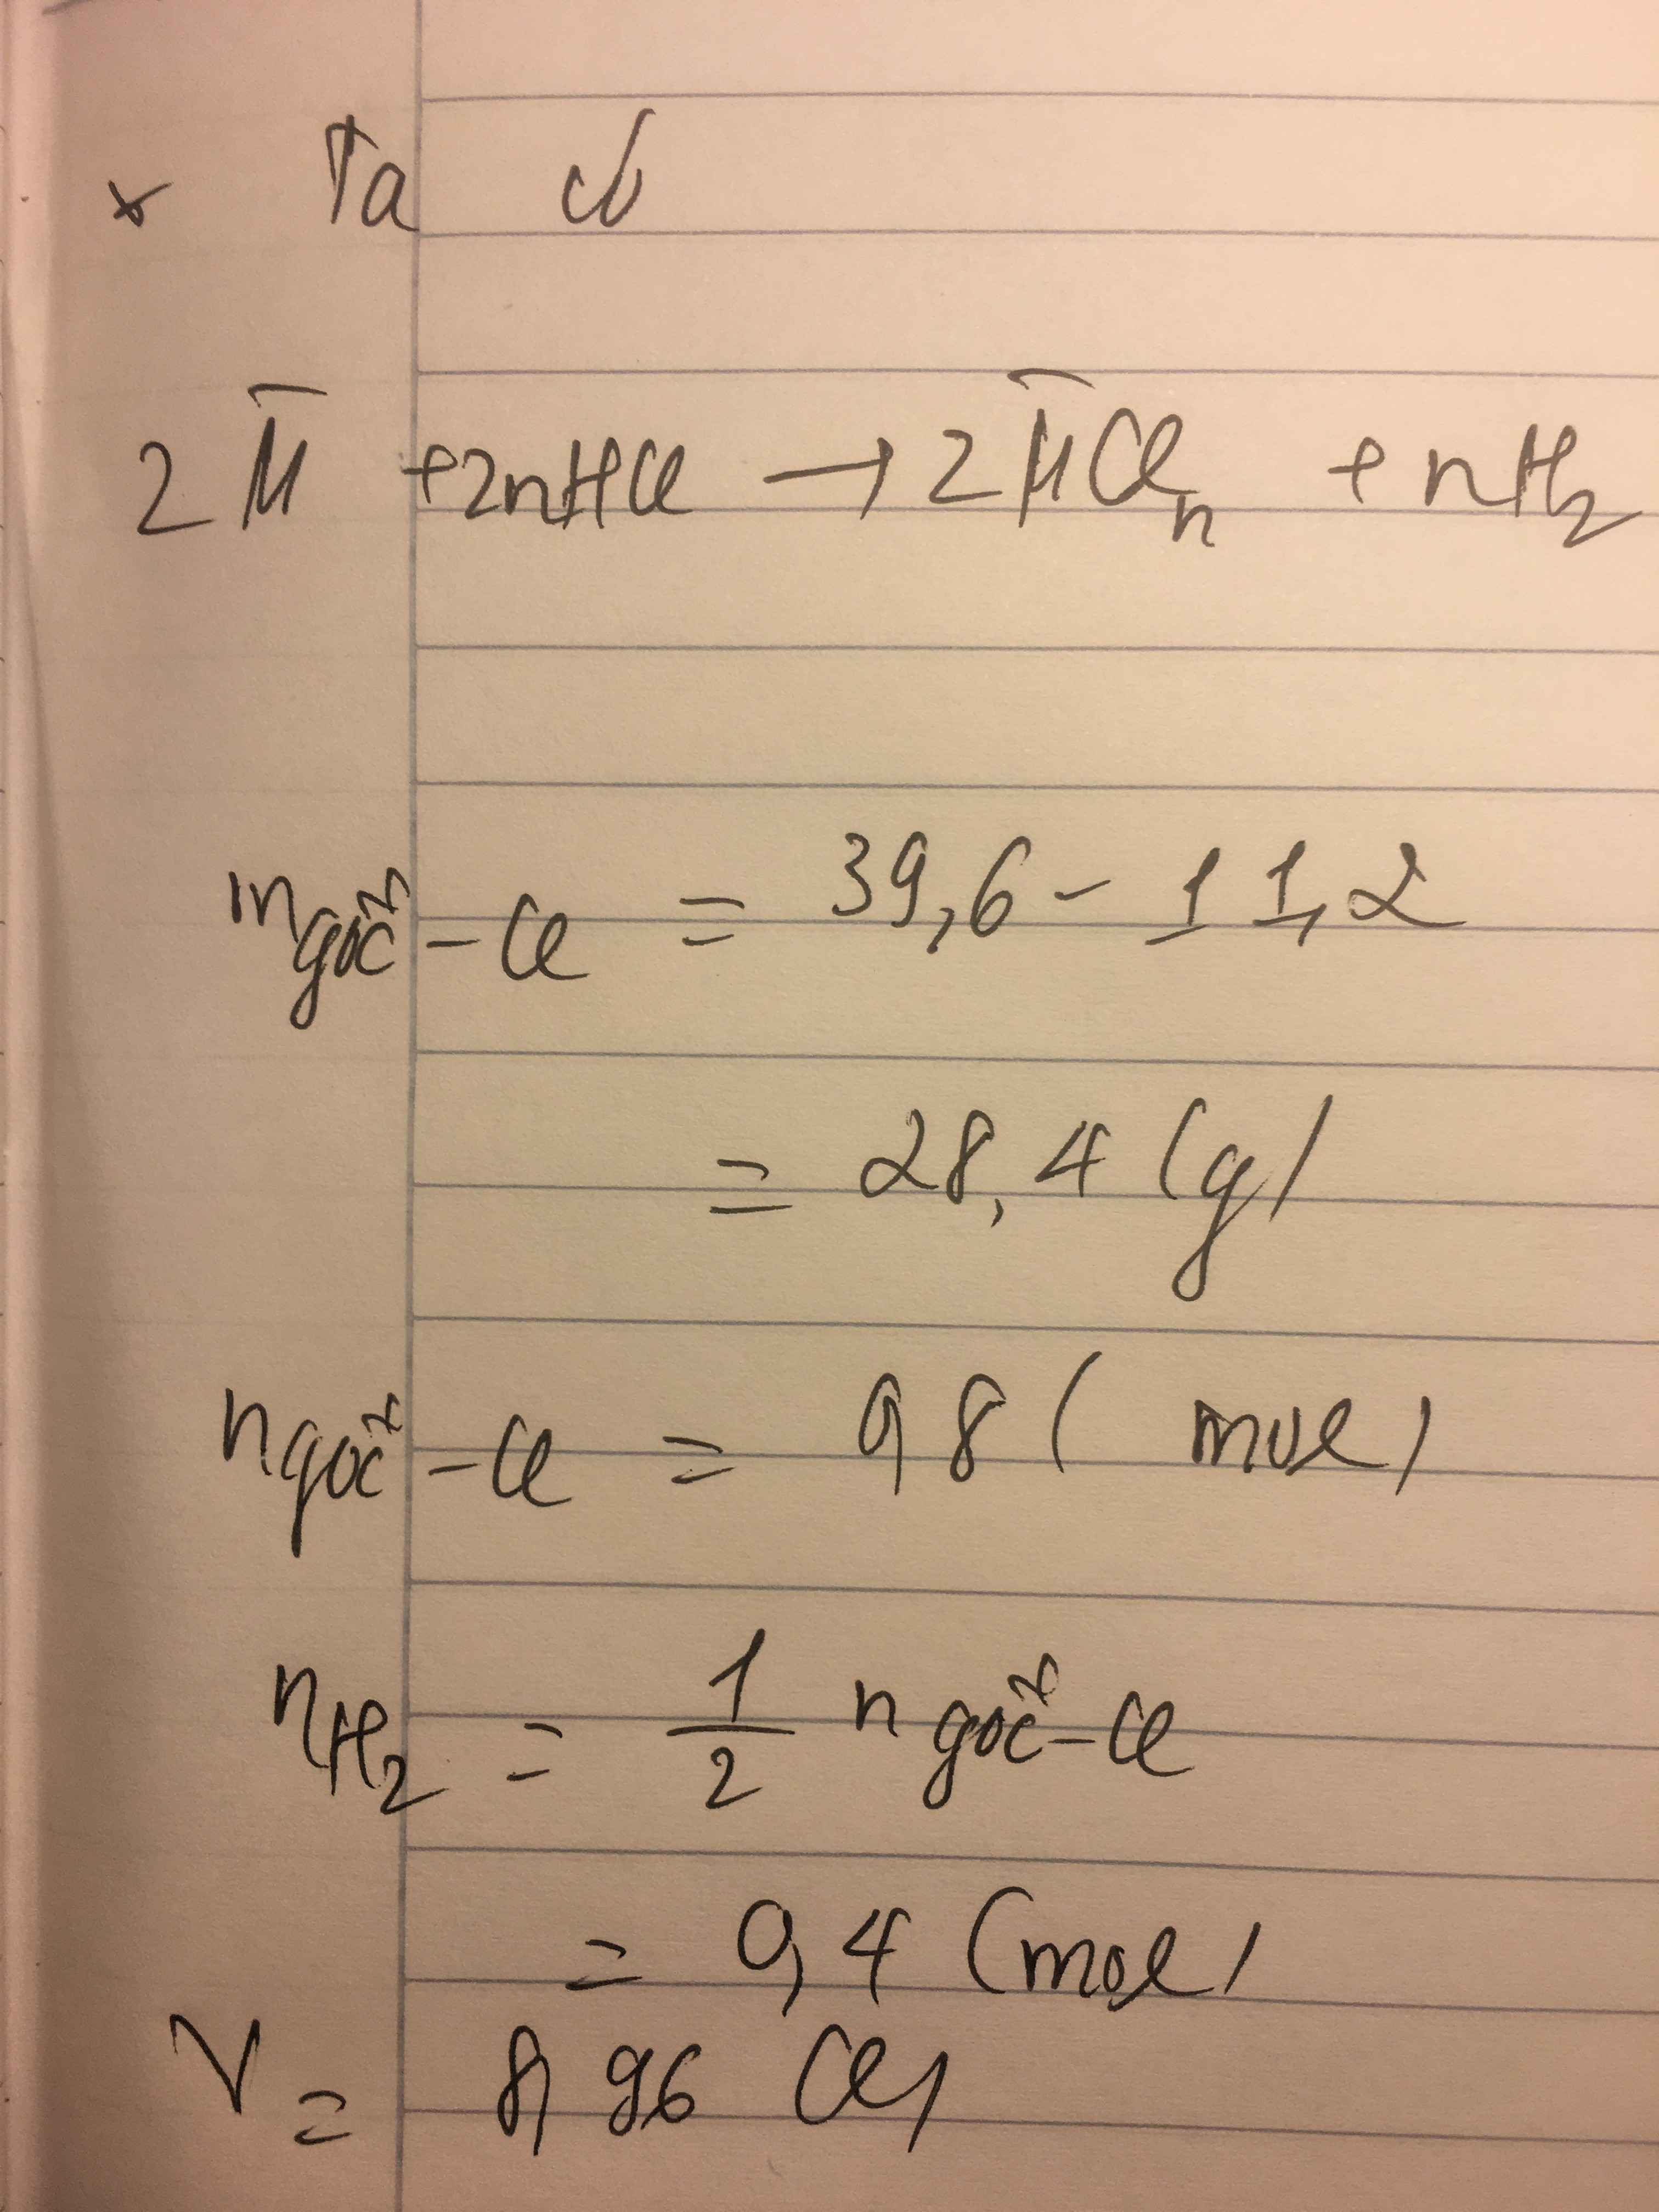 × Ta có
2M̅ + 2nHCl → 2M̅Clₙ + nH₂
m gốc -Cl = 39,6 - 11,2
= 28,4 (g)
n gốc -Cl = 0,8 (mol)
nH₂ = 1/2 n gốc -Cl
= 0,4 (mol)
V = 8,96 (l)